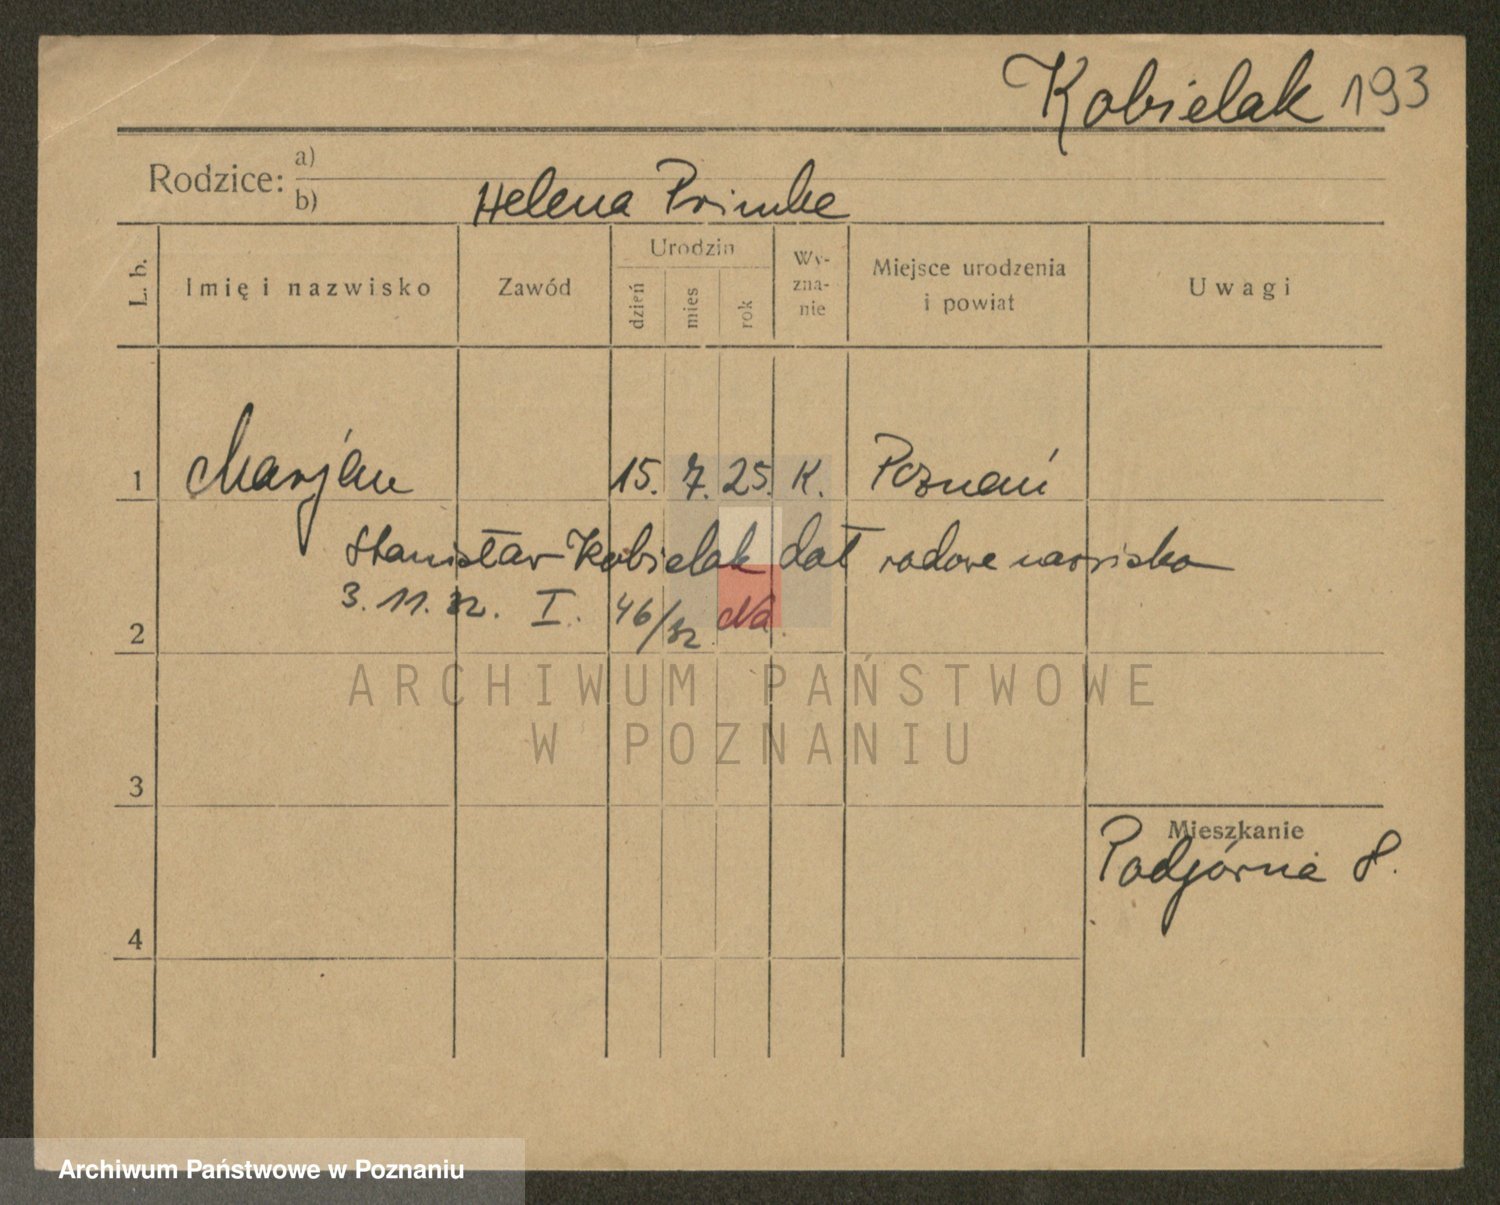 Kobielak 193
Rodzice: a)
b) Helena Primke
L. b.
Imię i nazwisko
Zawód
Urodzin
dzień
mies
rok
Wy-
zna-
nie
Miejsce urodzenia
i powiat
Uwagi
1 Marjan 15. 7. 25. K. Poznań
Stanisław Kobielak dał rodowe nazwisko
3. 11. 32. I. 46/32 Na
2
ARCHIWUM PAŃSTWOWE
W POZNANIU
3
Mieszkanie
Podgórna 8.
4
Archiwum Państwowe w Poznaniu